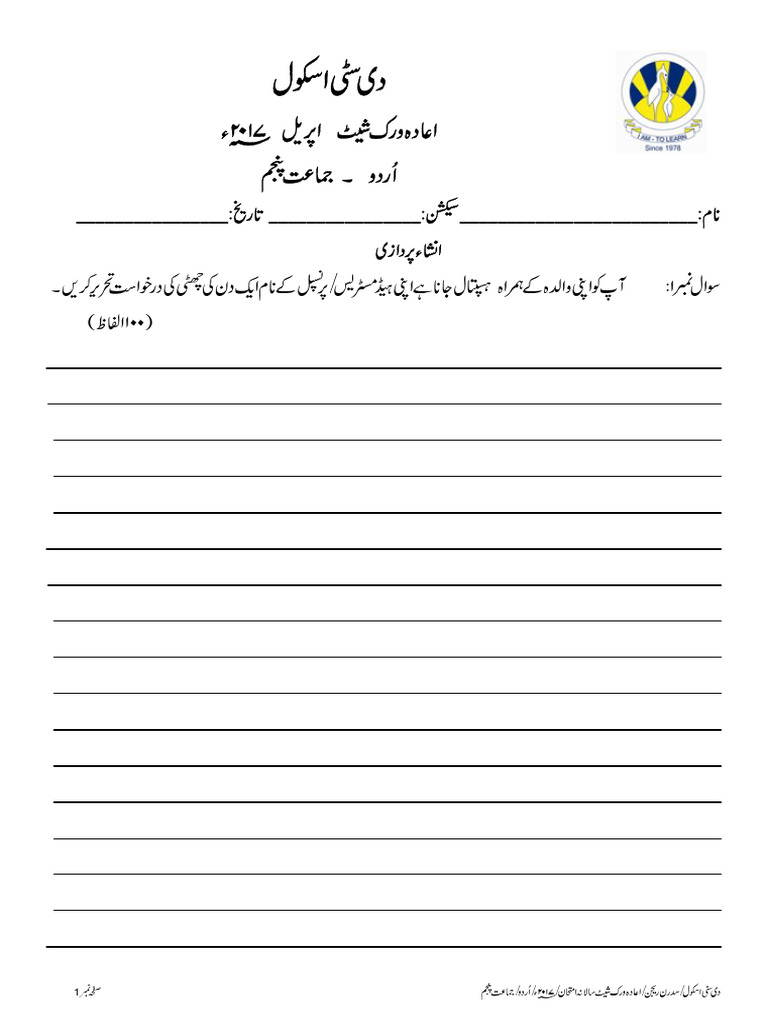 دی سٹی اسکول
I AM - TO LEARN
Since 1978
اعادہ ورک شیٹ اپریل ۲۰۱۷ء
اُردو ۔ جماعت پنجم
نام:_________________________سیکشن:________________ تاریخ:________________
انشاء پردازی
سوال نمبر۱: آپ کو اپنی والدہ کے ہمراہ ہسپتال جانا ہے اپنی ہیڈ مسٹریس/ پرنسپل کے نام ایک دن کی چھٹی کی درخواست تحریر کریں ۔
(۱۰۰ الفاظ)
دی سٹی اسکول/ سدرن ریجن/ اعادہ ورک شیٹ سالانہ امتحان/ ۲۰۱۷ء/ اُردو/ جماعت پنجم صفحہ نمبر 1